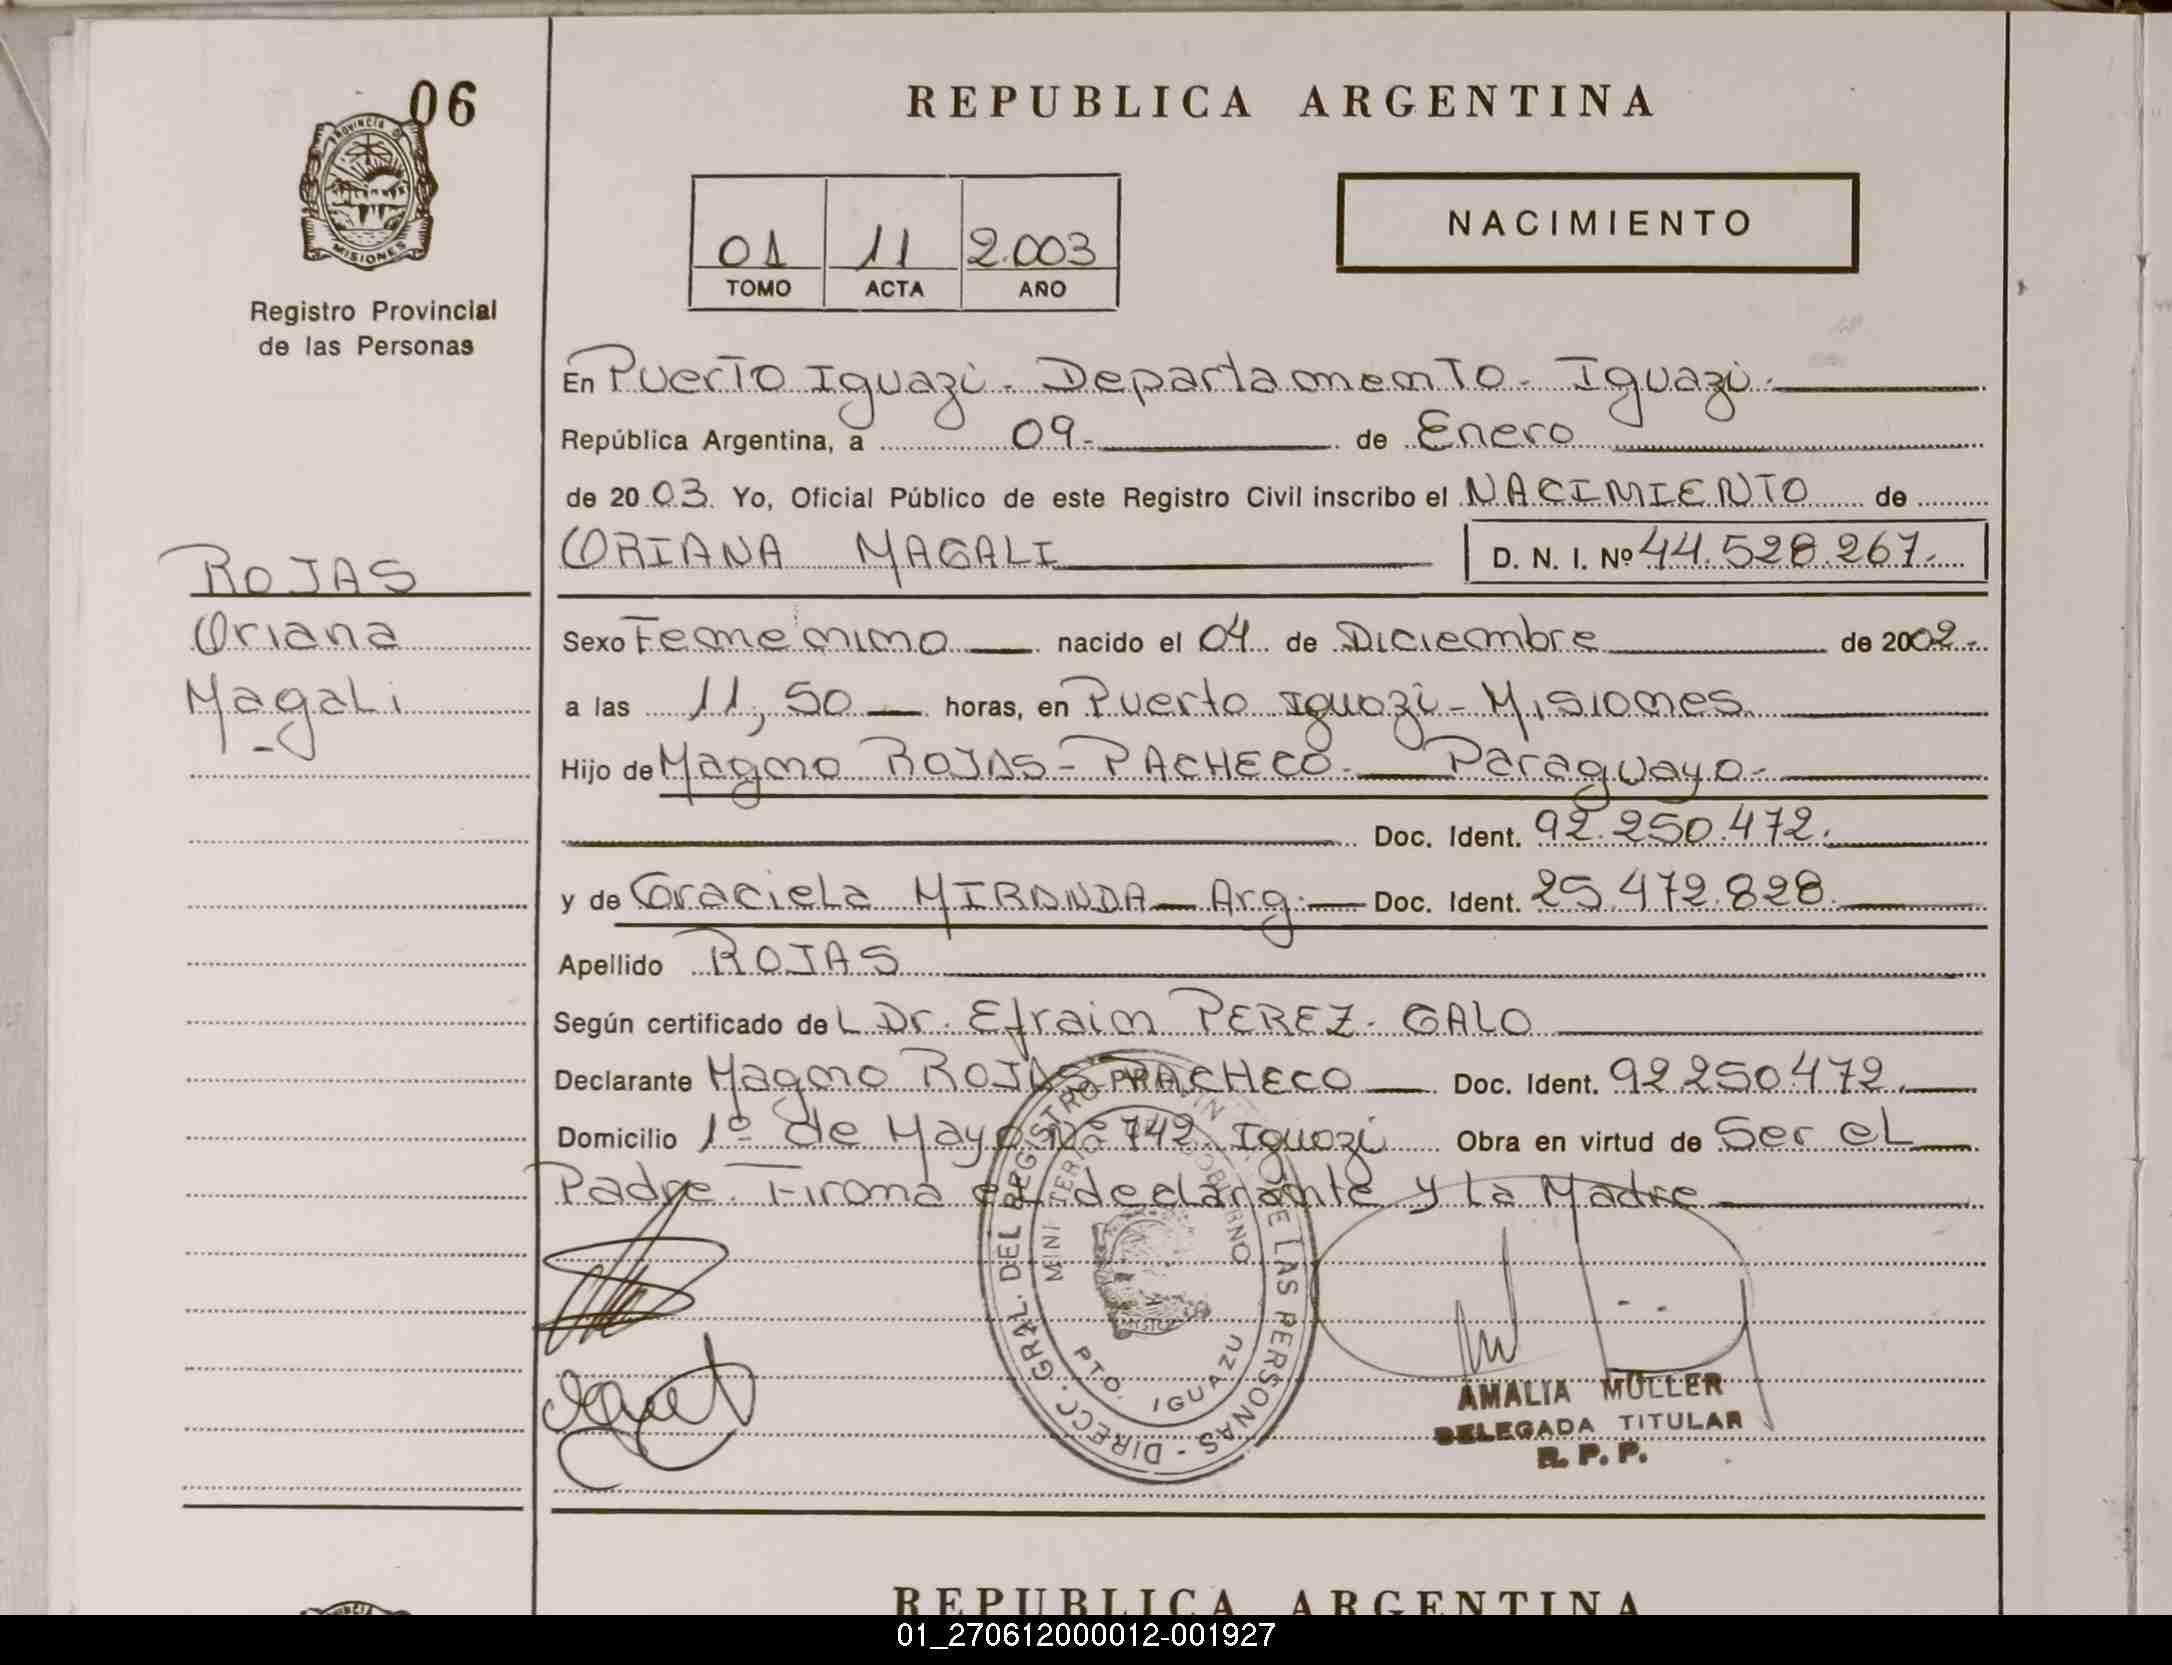 06
PROVINCIA D
MISIONES
Registro Provincial
de las Personas
REPUBLICA ARGENTINA
01 11 2.003
TOMO ACTA AÑO
NACIMIENTO
En Puerto Iguazú - Departamento - Iguazú -
República Argentina, a 09- de Enero
de 2003. Yo, Oficial Público de este Registro Civil inscribo el NACIMIENTO de
ORIANA MAGALI D. N. I. Nº 44.528.267.
ROJAS
Oriana
Magali
-
Sexo Femenino nacido el 04 de Diciembre de 2002.-
a las 11,50 horas, en Puerto Iguazú - Misiones
Hijo de Magno ROJAS - PACHECO - Paraguayo -
Doc. Ident. 92.250.472.
y de Graciela MIRANDA Arg. Doc. Ident. 25.472.828.
Apellido ROJAS
Según certificado del Dr. Efraim PEREZ - GALO
Declarante Magno ROJAS PACHECO Doc. Ident. 92250472.
Domicilio 1º de Mayo Nº 742 Iguazú Obra en virtud de Ser el
Padre. Firma el declarante y la Madre
DIRECC. GRAL. DEL REGISTRO PROVIN DE LAS PERSONAS -
MINI TERIO GOBIERNO
PTO. IGUAZU
AMALIA MULLER
DELEGADA TITULAR
R. P. P.
REPUBLICA ARGENTINA
01_270612000012-001927